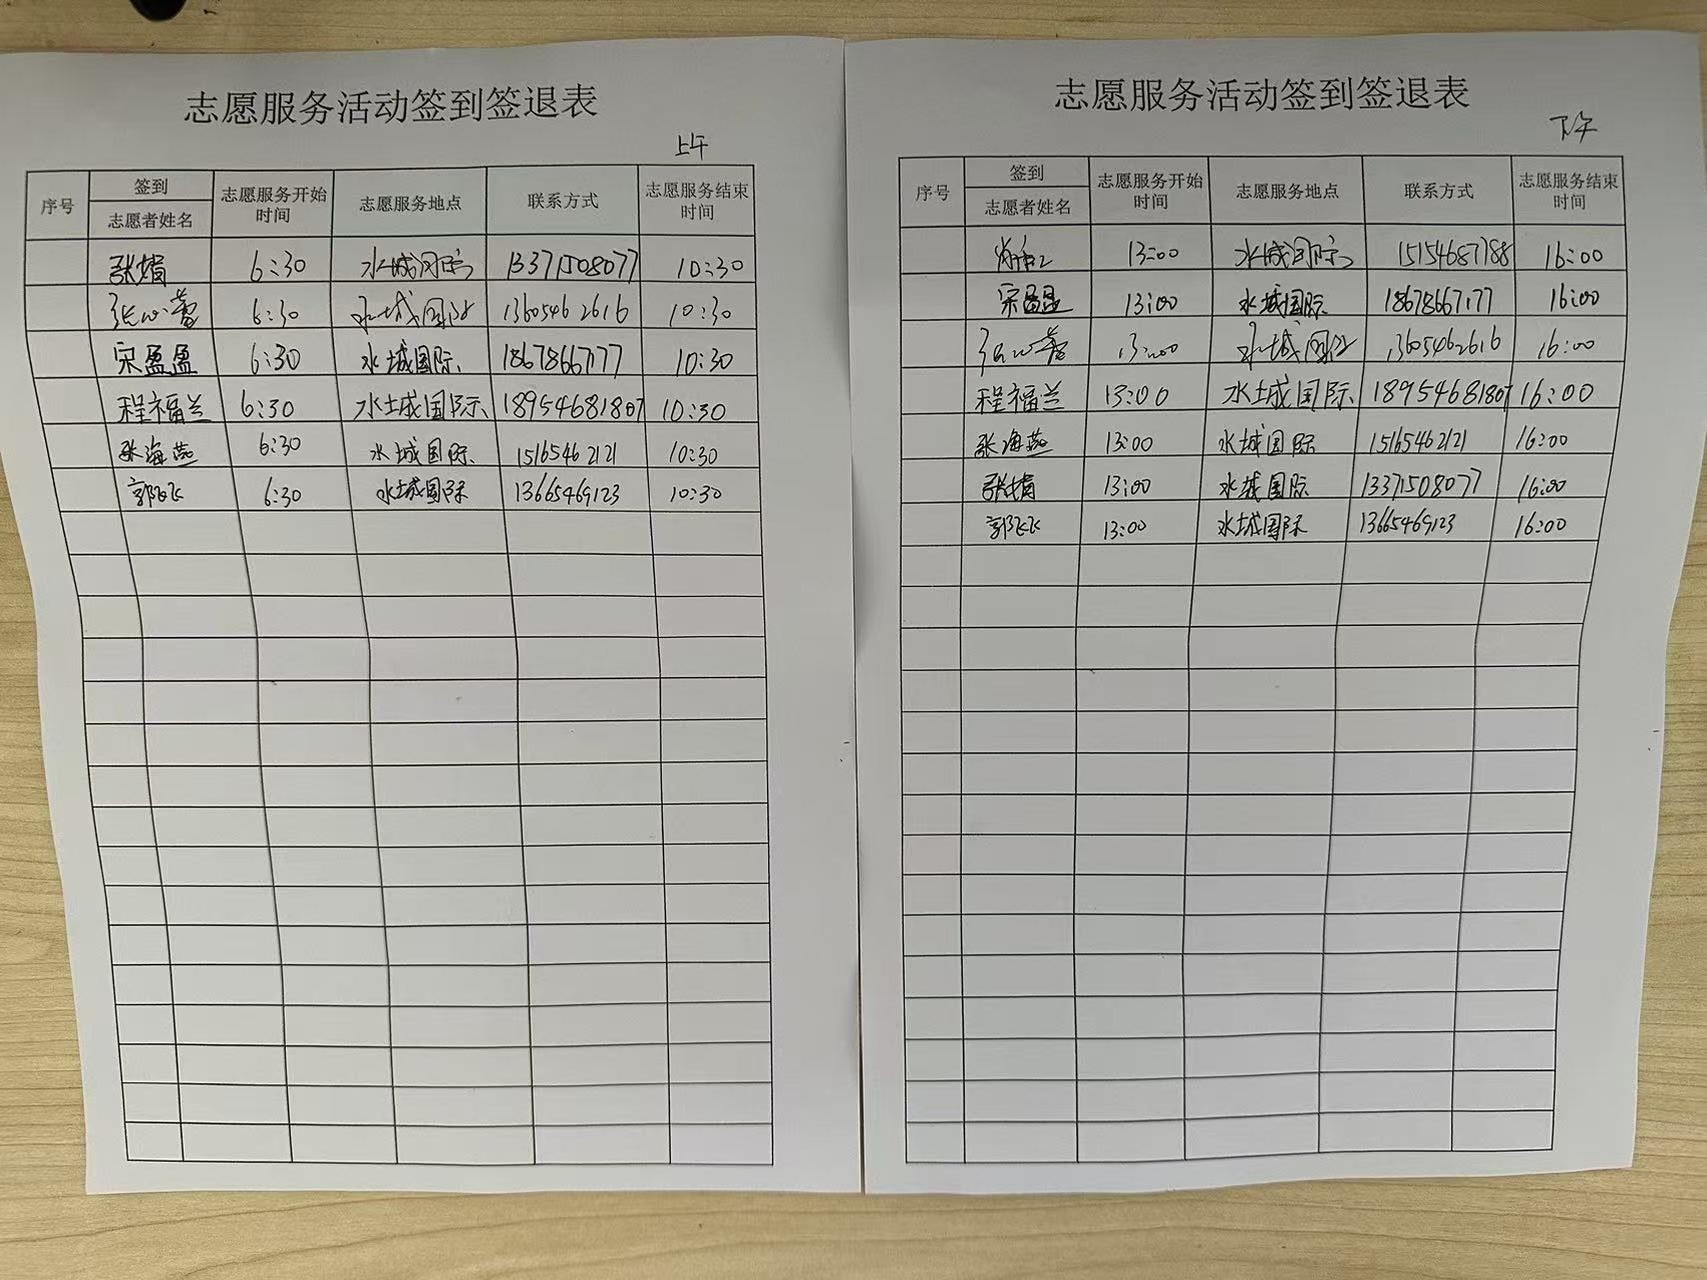 志愿服务活动签到签退表
上午
序号 签到 志愿者姓名 志愿服务开始时间 志愿服务地点 联系方式 志愿服务结束时间
张娟 6:30 水城国际 13371508077 10:30
张心蕾 6:30 水城国际 13605462616 10:30
宋盈盈 6:30 水城国际 18678667177 10:30
程福兰 6:30 水城国际 18954681807 10:30
张海燕 6:30 水城国际 15165462121 10:30
郭飞飞 6:30 水城国际 13665469123 10:30
志愿服务活动签到签退表
下午
序号 签到 志愿者姓名 志愿服务开始时间 志愿服务地点 联系方式 志愿服务结束时间
13:00 水城国际 15154687788 16:00
宋盈盈 13:00 水城国际 18678667177 16:00
张心蕾 13:00 水城国际 13605462616 16:00
程福兰 13:00 水城国际 18954681807 16:00
张海燕 13:00 水城国际 15165462121 16:00
张娟 13:00 水城国际 13371508077 16:00
郭飞飞 13:00 水城国际 13665469123 16:00